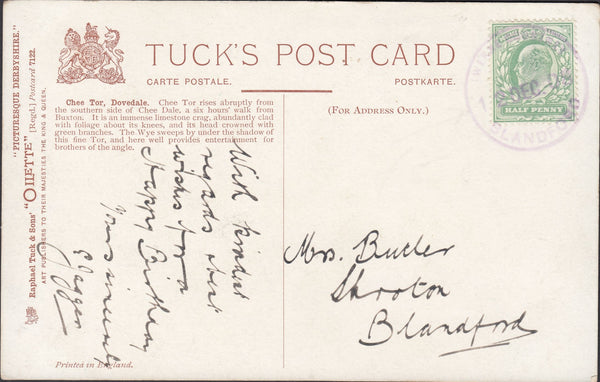 "PICTURESQUE DERBYSHIRE."
Raphael Tuck & Sons' "OILETTE" [Regd.] Postcard 7122.
ART PUBLISHERS TO THEIR MAJESTIES THE KING & QUEEN.
TUCK'S POST CARD
CARTE POSTALE.
POSTKARTE.
Chee Tor, Dovedale. Chee Tor rises abruptly from
the southern side of Chee Dale, a six hours' walk from
Buxton. It is an immense limestone crag, abundantly clad
with foliage about its knees, and its head crowned with
green branches. The Wye sweeps by under the shadow of
this fine Tor, and here well provides entertainment for
brothers of the angle.
(FOR ADDRESS ONLY.)
HALF PENNY
DEC
BLANDFORD
With kindest
regards and
wishes for a
Happy Birthday
Yours sincerely
Mrs. Butler
Shroton
Blandford
Printed in England.